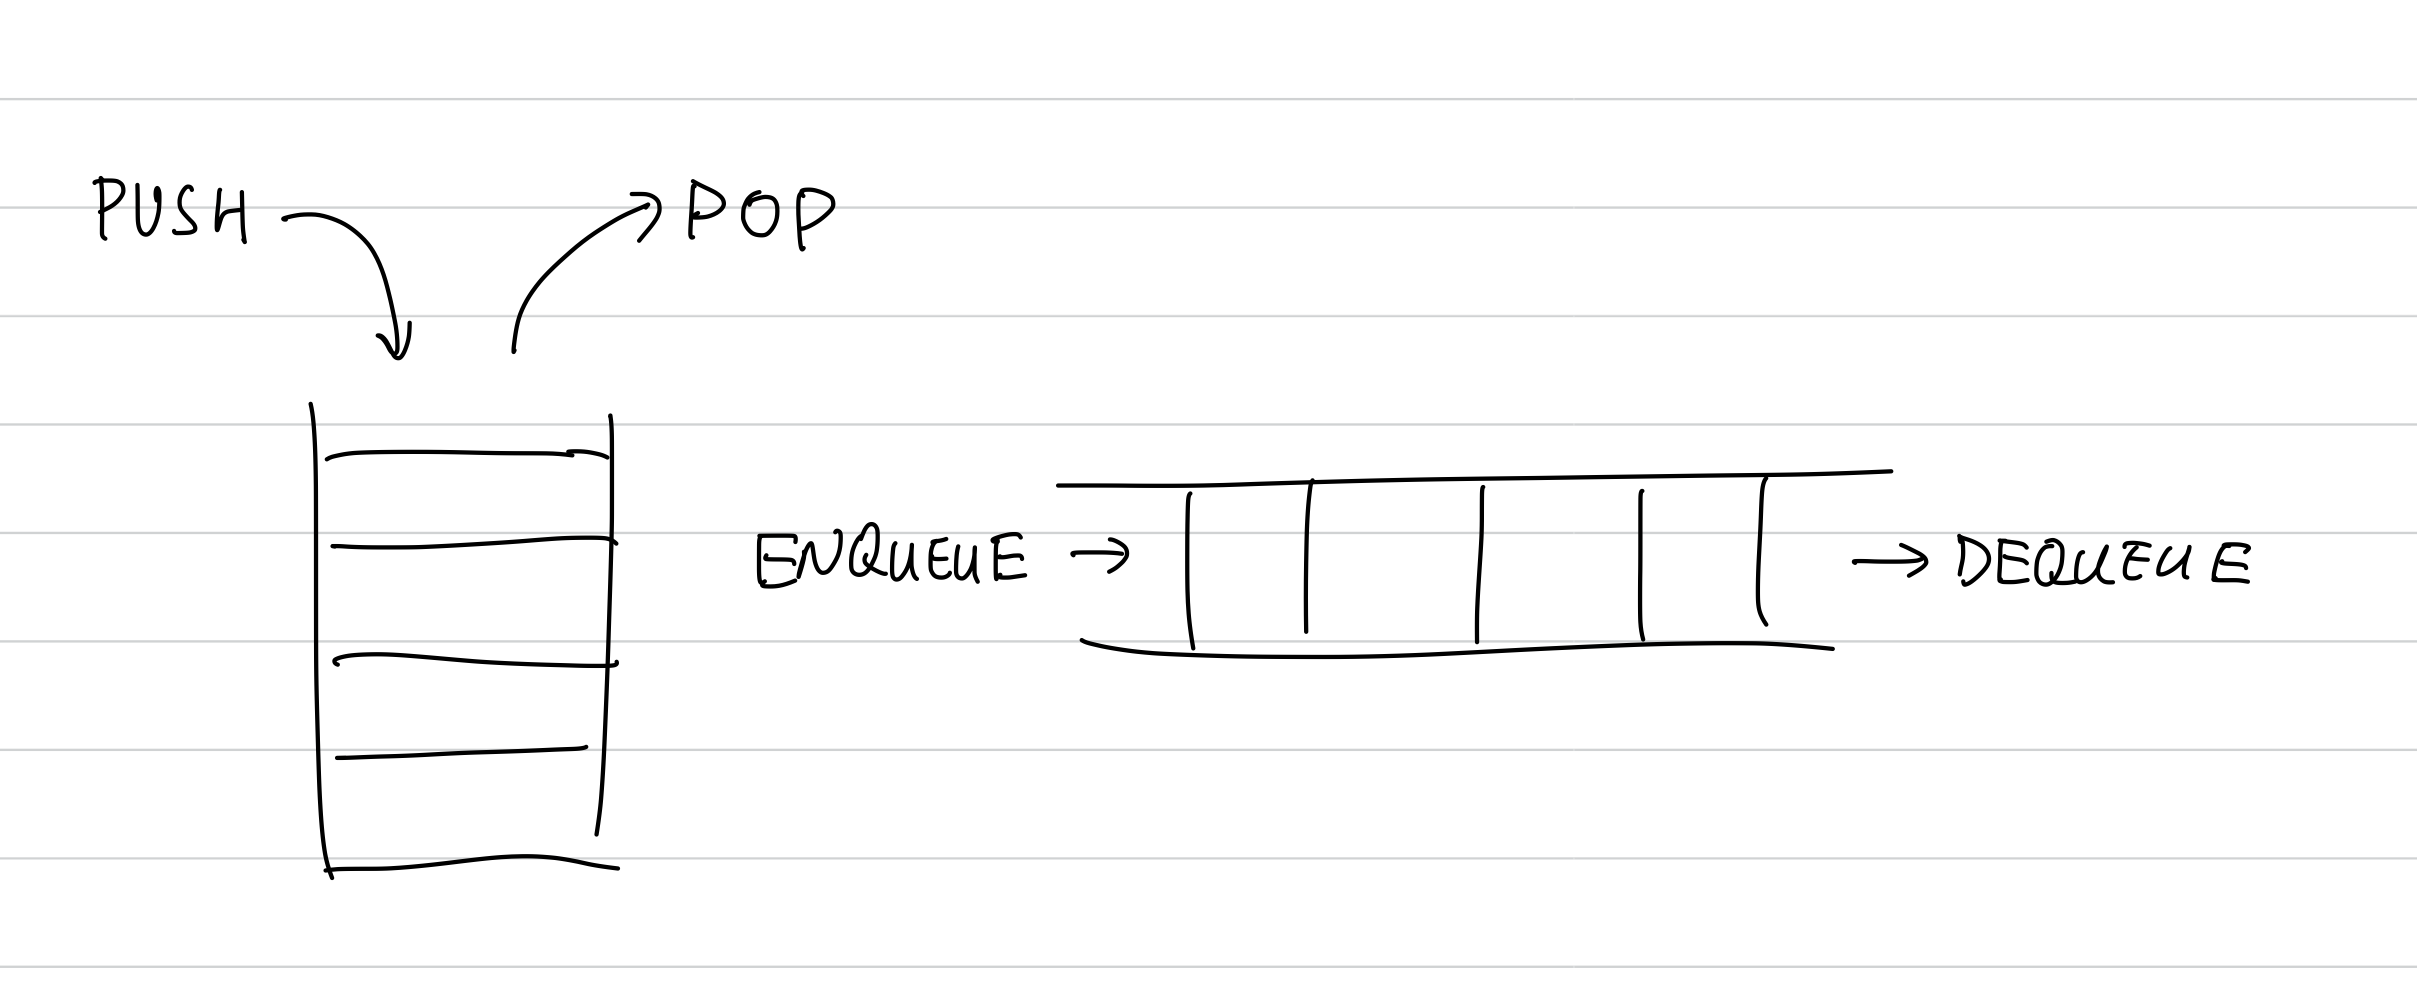 PUSH POP
ENQUEUE DEQUEUE